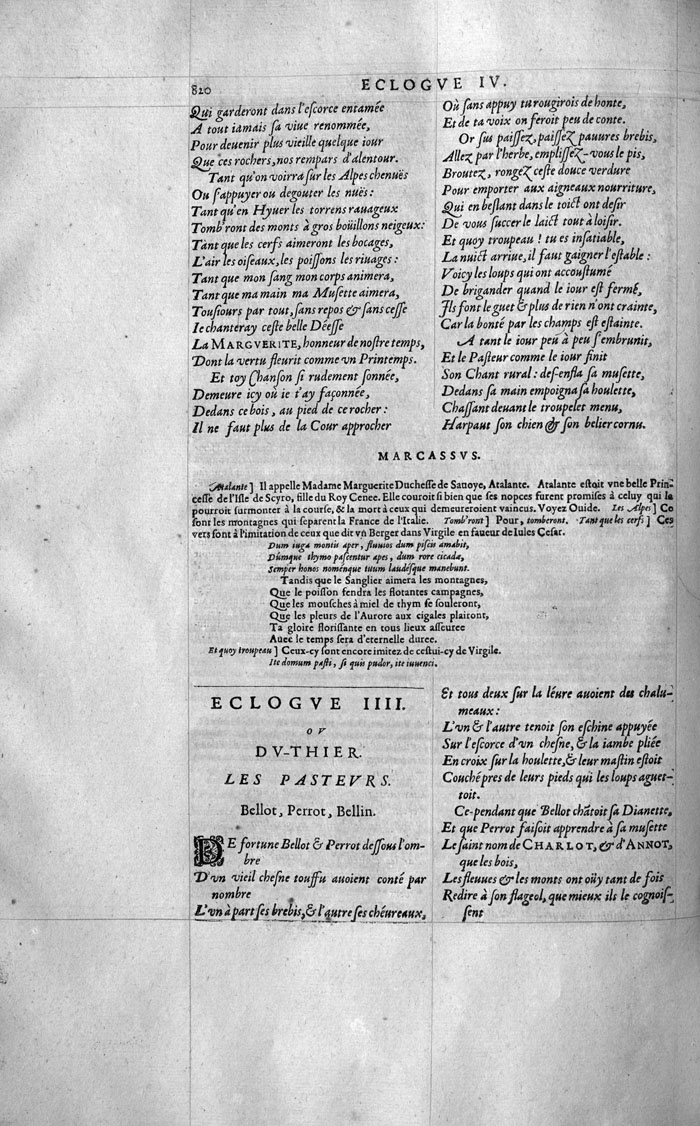 820
ECLOGVE IV.
Qui garderont dans l'eſcorce entamée
A tout iamais ſa viue renommée,
Pour deuenir plus vieille quelque iour
Que ces rochers, nos rempars d'alentour.
Tant qu'on voirra ſur les Alpes chenuës
Ou s'appuyer ou degouter les nuës:
Tant qu'en Hyuer les torrens rauageux
Tomb'ront des monts à gros boüillons neigeux:
Tant que les cerfs aimeront les bocages,
L'air les oiſeaux, les poiſſons les riuages:
Tant que mon ſang mon corps animera,
Tant que ma main ma Muſette aimera,
Touſiours par tout, ſans repos & ſans ceſſe
Ie chanteray ceſte belle Déeſſe
La MARGVERITE, honneur de noſtre temps,
Dont la vertu fleurit comme vn Printemps.
Et toy Chanſon ſi rudement ſonnée,
Demeure icy où ie t'ay façonnée,
Dedans ce bois, au pied de ce rocher:
Il ne faut plus de la Cour approcher
Où ſans appuy tu rougirois de honte,
Et de ta voix on feroit peu de conte.
Or ſus paiſſez, paiſſez pauures brebis,
Allez par l'herbe, empliſſez-vous le pis,
Broutez, rongez ceſte douce verdure
Pour emporter aux aigneaux nourriture,
Qui en beſlant dans le toict ont deſir
De vous ſuccer le laict tout à loiſir.
Et quoy troupeau! tu es inſatiable,
La nuict arriue, il faut gaigner l'eſtable:
Voicy les loups qui ont accouſtumé
De brigander quand le iour eſt fermé,
Ils font le guet & plus de rien n'ont crainte,
Car la bonté par les champs eſt eſtainte.
A tant le iour peu à peu s'embrunit,
Et le Paſteur comme le iour finit
Son Chant rural: deſ-enfla ſa muſette,
Dedans ſa main empoigna ſa houlette,
Chaſſant deuant le troupelet menu,
Harpaut ſon chien & ſon belier cornu.
MARCASSVS.
Atalante] Il appelle Madame Marguerite Ducheſſe de Sauoye, Atalante. Atalante eſtoit vne belle Prin-
ceſſe de l'Iſle de Scyro, fille du Roy Cenee. Elle couroit ſi bien que ſes nopces furent promiſes à celuy qui la
pourroit ſurmonter à la courſe, & la mort à ceux qui demeureroient vaincus. Voyez Ouide. Les Alpes] Ce
ſont les montagnes qui ſeparent la France de l'Italie. Tomb'ront] Pour, tomberont. Tant que les cerfs] Ces
vers ſont à l'imitation de ceux que dit vn Berger dans Virgile en faueur de Iules Ceſar.
Dum iuga montis aper, fluuios dum piſcis amabit,
Dúmque thymo paſcentur apes, dum rore cicadæ,
Semper honos noménque tuum laudéſque manebunt.
Tandis que le Sanglier aimera les montagnes,
Que le poiſſon fendra les flotantes campagnes,
Que les mouſches à miel de thym ſe ſouleront,
Que les pleurs de l'Aurore aux cigales plairont,
Ta gloire floriſſante en tous lieux aſſeuree
Auec le temps ſera d'eternelle duree.
Et quoy troupeau] Ceux-cy ſont encore imitez de ceſtui-cy de Virgile.
Ite domum paſti, ſi quis pudor, ite iuuenci.
ECLOGVE IIII.
OV
DV-THIER.
LES PASTEVRS.
Bellot, Perrot, Bellin.
DE fortune Bellot & Perrot deſſous l'om-
bre
D'vn vieil cheſne touffu auoient conté par
nombre
L'vn à part ſes brebis, & l'autre ſes chéureaux,
Et tous deux ſur la léure auoient des chalu-
meaux:
L'vn & l'autre tenoit ſon eſchine appuyée
Sur l'eſcorce d'vn cheſne, & la iambe pliée
En croix ſur la houlette, & leur maſtin eſtoit
Couché pres de leurs pieds qui les loups aguet-
toit.
Ce-pendant que Bellot chātoit ſa Dianette,
Et que Perrot faiſoit apprendre à ſa muſette
Le ſaint nom de CHARLOT, & d'ANNOT,
que les bois,
Les fleuues & les monts ont oüy tant de fois
Redire à ſon flageol, que mieux ils le cognoiſ-
ſent